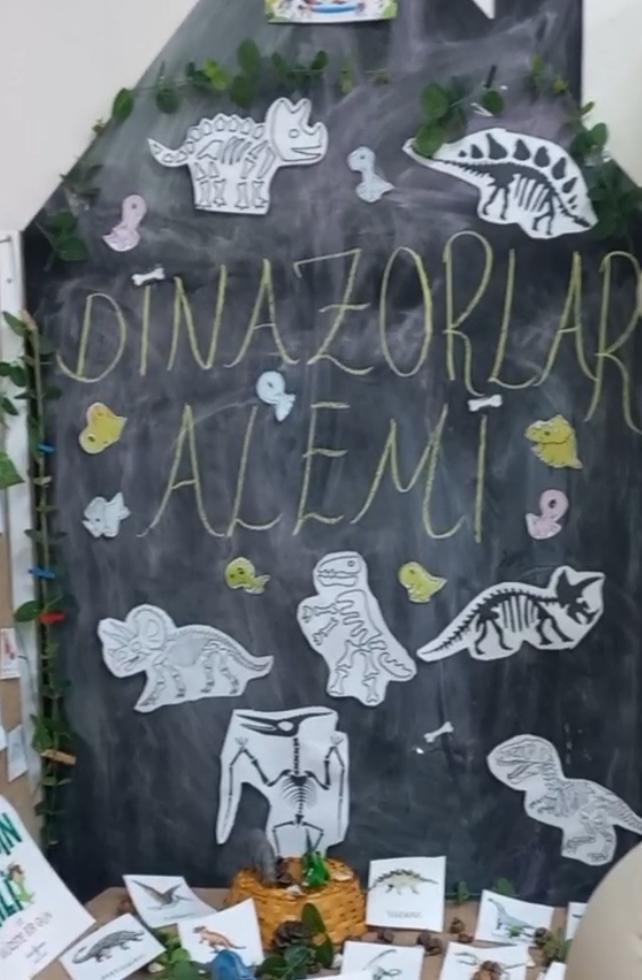 DİNAZORLAR
ALEMİ